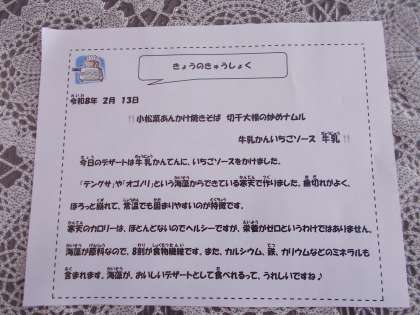 きょうのきゅうしょく
令和8年 2月 13日
小松菜あんかけ焼きそば 切干大根の炒めナムル
牛乳かんいちごソース 牛乳
今日のデザートは牛乳かんてんに、いちごソースをかけました。
「テングサ」や「オゴノリ」という海藻からできている寒天で作りました。歯切れがよく、
ほろっと崩れて、常温でも固まりやすいのが特徴です。
寒天のカロリーは、ほとんどないのでヘルシーですが、栄養がゼロというわけではありません。
海藻が原料なので、8割が食物繊維です。また、カルシウム、鉄、カリウムなどのミネラルも
含まれます。海藻が、おいしいデザートとして食べれるって、うれしいですね♪